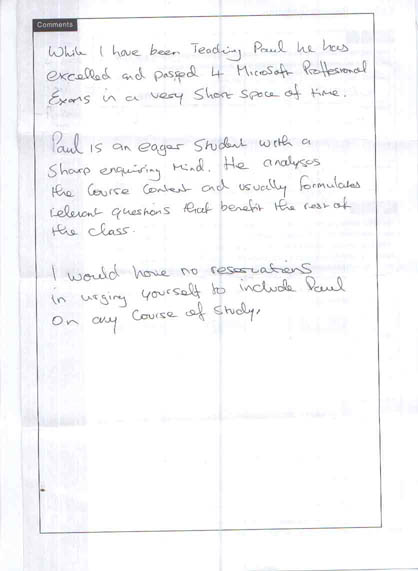 Comments
While I have been Teaching Paul he has
excelled and passed 4 Microsoft Proffesional
Exams in a very short space of time.
Paul is an eager student with a
sharp enquiring mind. He analyses
the course content and usually formulates
relevant questions that benefit the rest of
the class.
I would have no reservations
in urging yourself to include Paul
on any course of study.